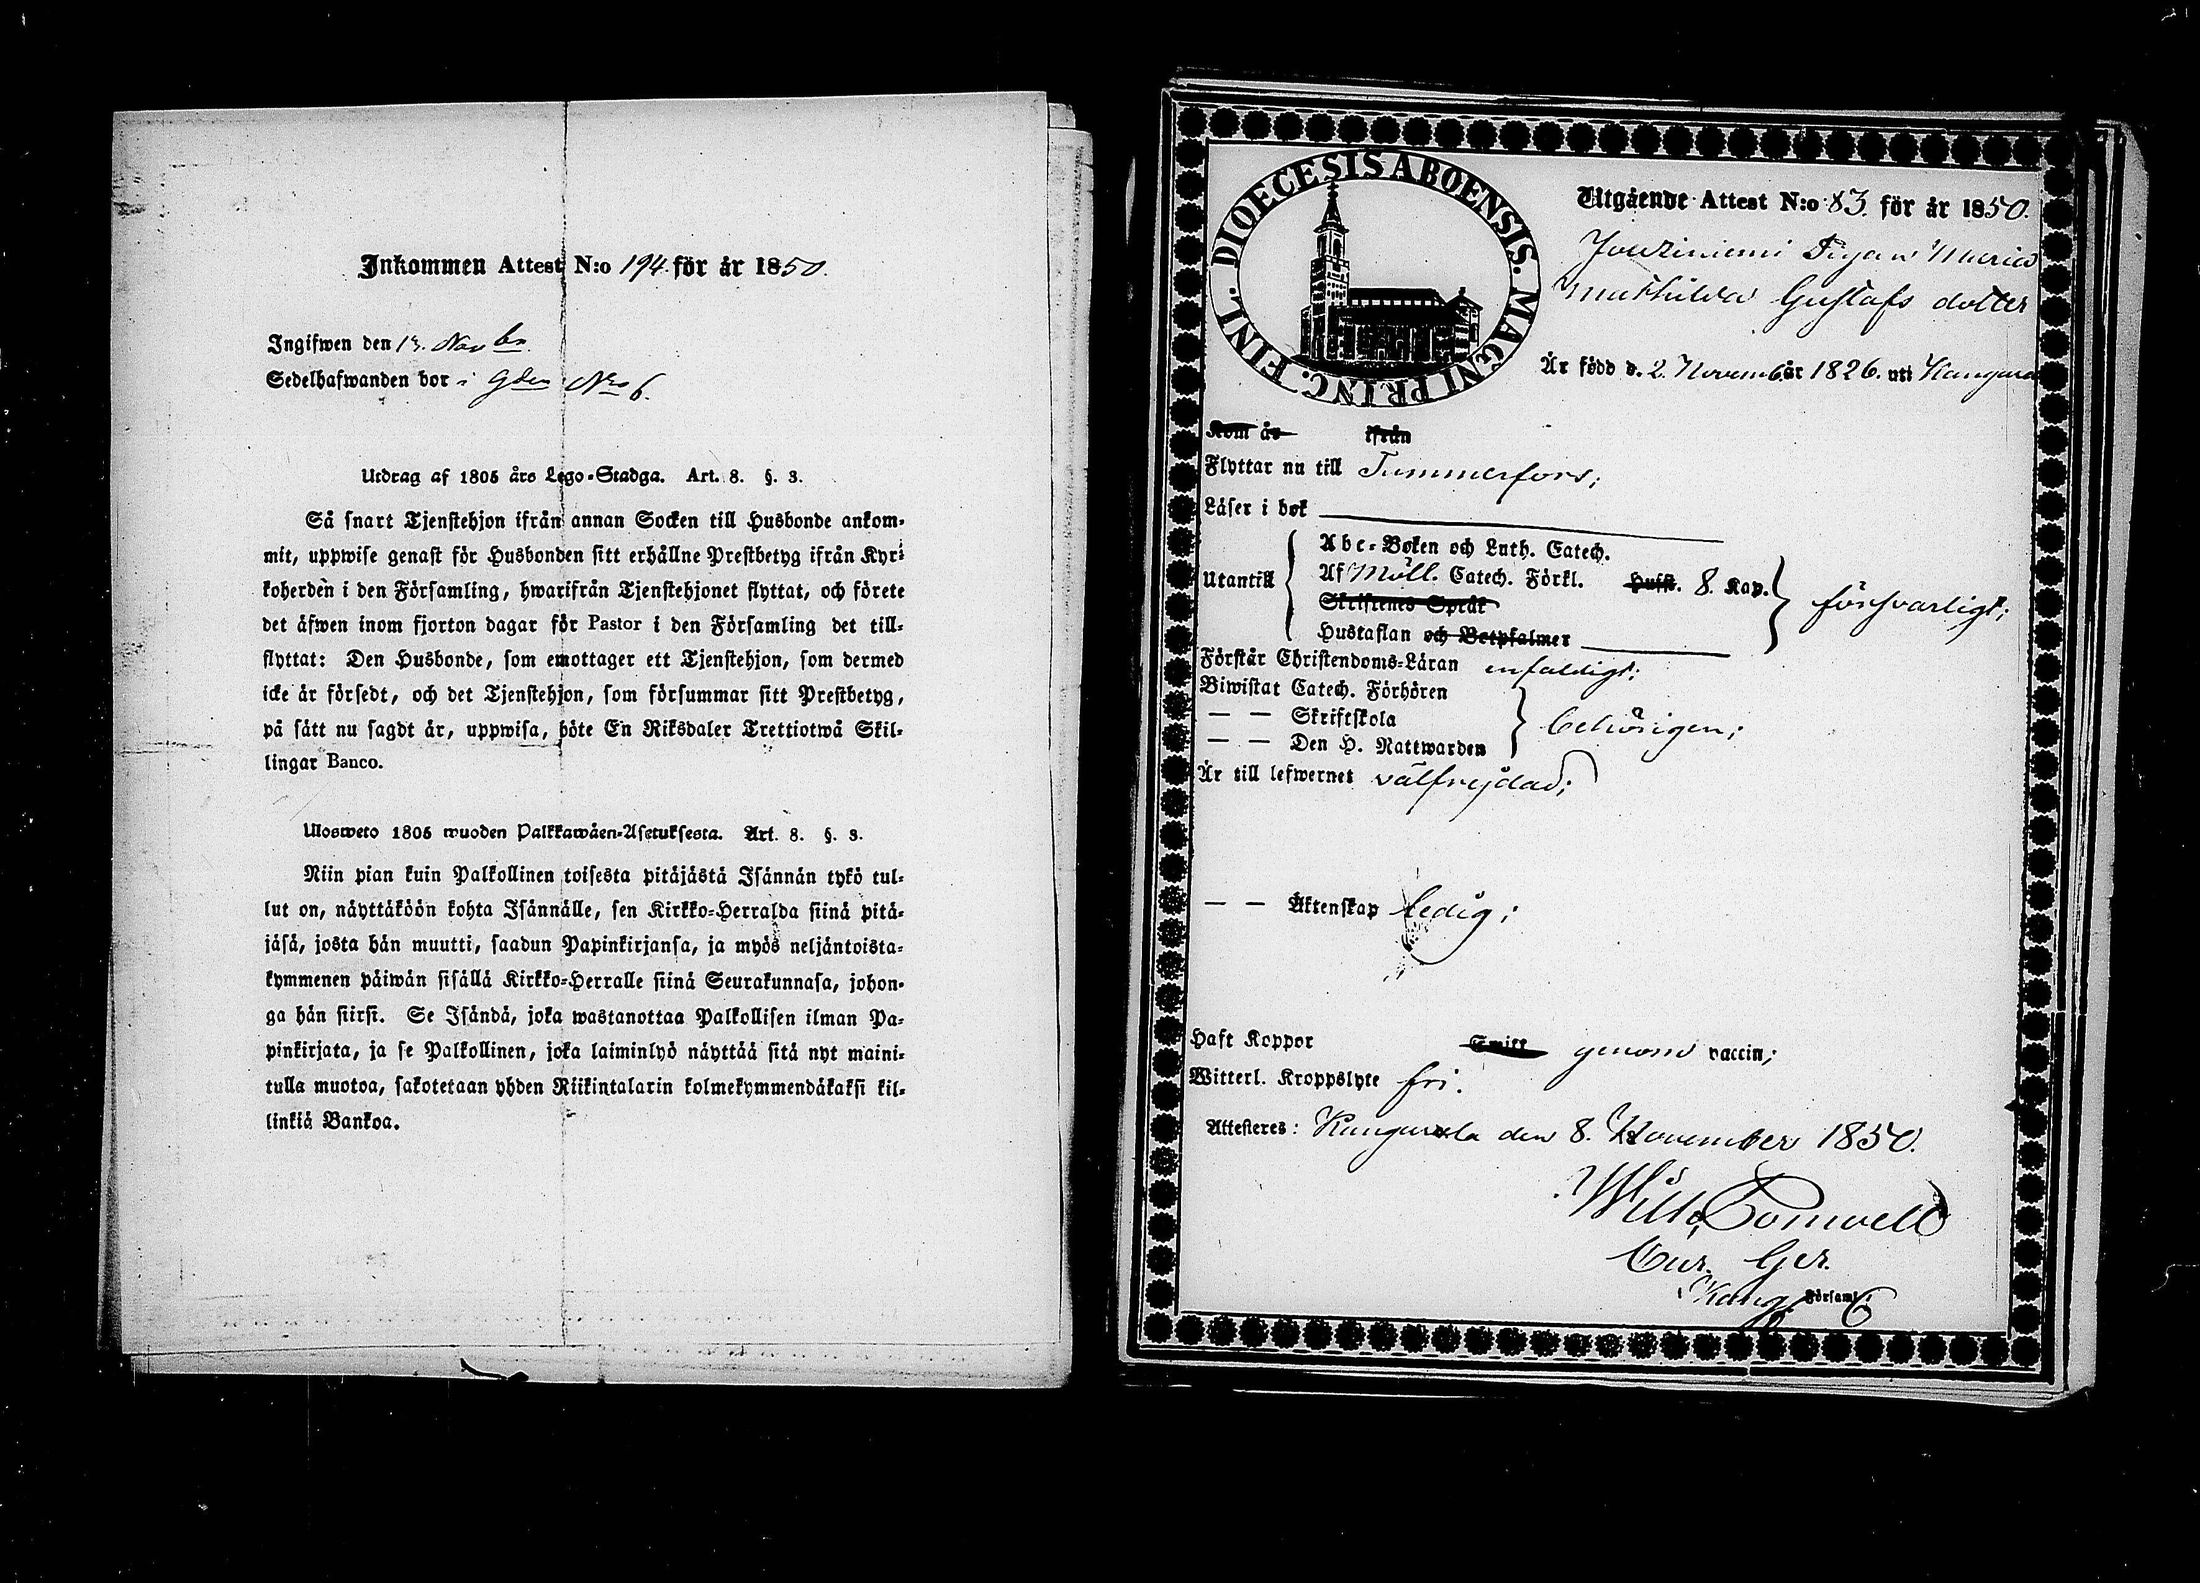 Inkommen Attest N:o 194. för år 1850.
Ingifwen den 13. Novbr
Sedelhafwanden bor i Gden Nro 6.
Utdrag af 1805 års Lego-Stadga. Art. 8. §. 3.
Så snart Tjenstehjon ifrån annan Socken till Husbonde ankom-
mit, uppwise genast för Husbonden sitt erhållne Prestbetyg ifrån Kyr-
koherden i den Församling, hwarifrån Tjenstehjonet flyttat, och förete
det äfwen inom fjorton dagar för Pastor i den Församling det till-
flyttat: Den Husbonde, som emottager ett Tjenstehjon, som dermed
icke är försedt, och det Tjenstehjon, som försummar sitt Prestbetyg,
på sätt nu sagdt är, uppwisa, böte En Riksdaler Trettiotwå Skil-
lingar Banco.
Ulosweto 1805 wuoden Palkkawäen-Asetuksesta. Art. 8. §. 3.
Niin pian kuin Palkollinen toisesta pitäjästä Isännän tykö tul-
lut on, näyttäköön kohta Isännälle, sen Kirkko-Herralda siinä pitä-
jäsä, josta hän muutti, saadun Papinkirjansa, ja myös neljäntoista-
kymmenen päiwän sisällä Kirkko-Herralle siinä Seurakunnasa, johon-
ga hän siirsi. Se Isändä, joka wastanottaa Palkollisen ilman Pa-
pinkirjata, ja se Palkollinen, joka laiminlyö näyttää sitä nyt maini-
tulla muotoa, sakotetaan yhden Riikintalarin kolmekymmendäkaksi kil-
linkiä Bankoa.
DIOECESIS ABOENSIS. MAGNI PRINC. FINL.
Utgående Attest N:o 83. för år 1850.
Pigan Maria
Mathilda Gustafs dotter
Är född d. 2. Novemb. år 1826. uti Kangasa
Kom år ifrån
Flyttar nu till Tammerfors;
Läser i bok
Utantill
Abc-Boken och Luth. Catech.
Af Möll. Catech. Förkl. Hufst. 8. Kap.
Skriftenes Språk
Hustaflan och Botpsalmer
försvarligt;
Förstår Christendoms-Läran enfaldigt;
Biwistat Catech. Förhören
— — Skriftskola
— — Den H. Nattwarden
behörigen;
Är till lefwernet välfrejdad;
— — Äktenskap ledig;
Haft Koppor Switt genom vaccin;
Witterl. Kroppslyte fri.
Attesteres: Kangasala den 8. November 1850.
Cur. Ger.
Kang. Förseml: